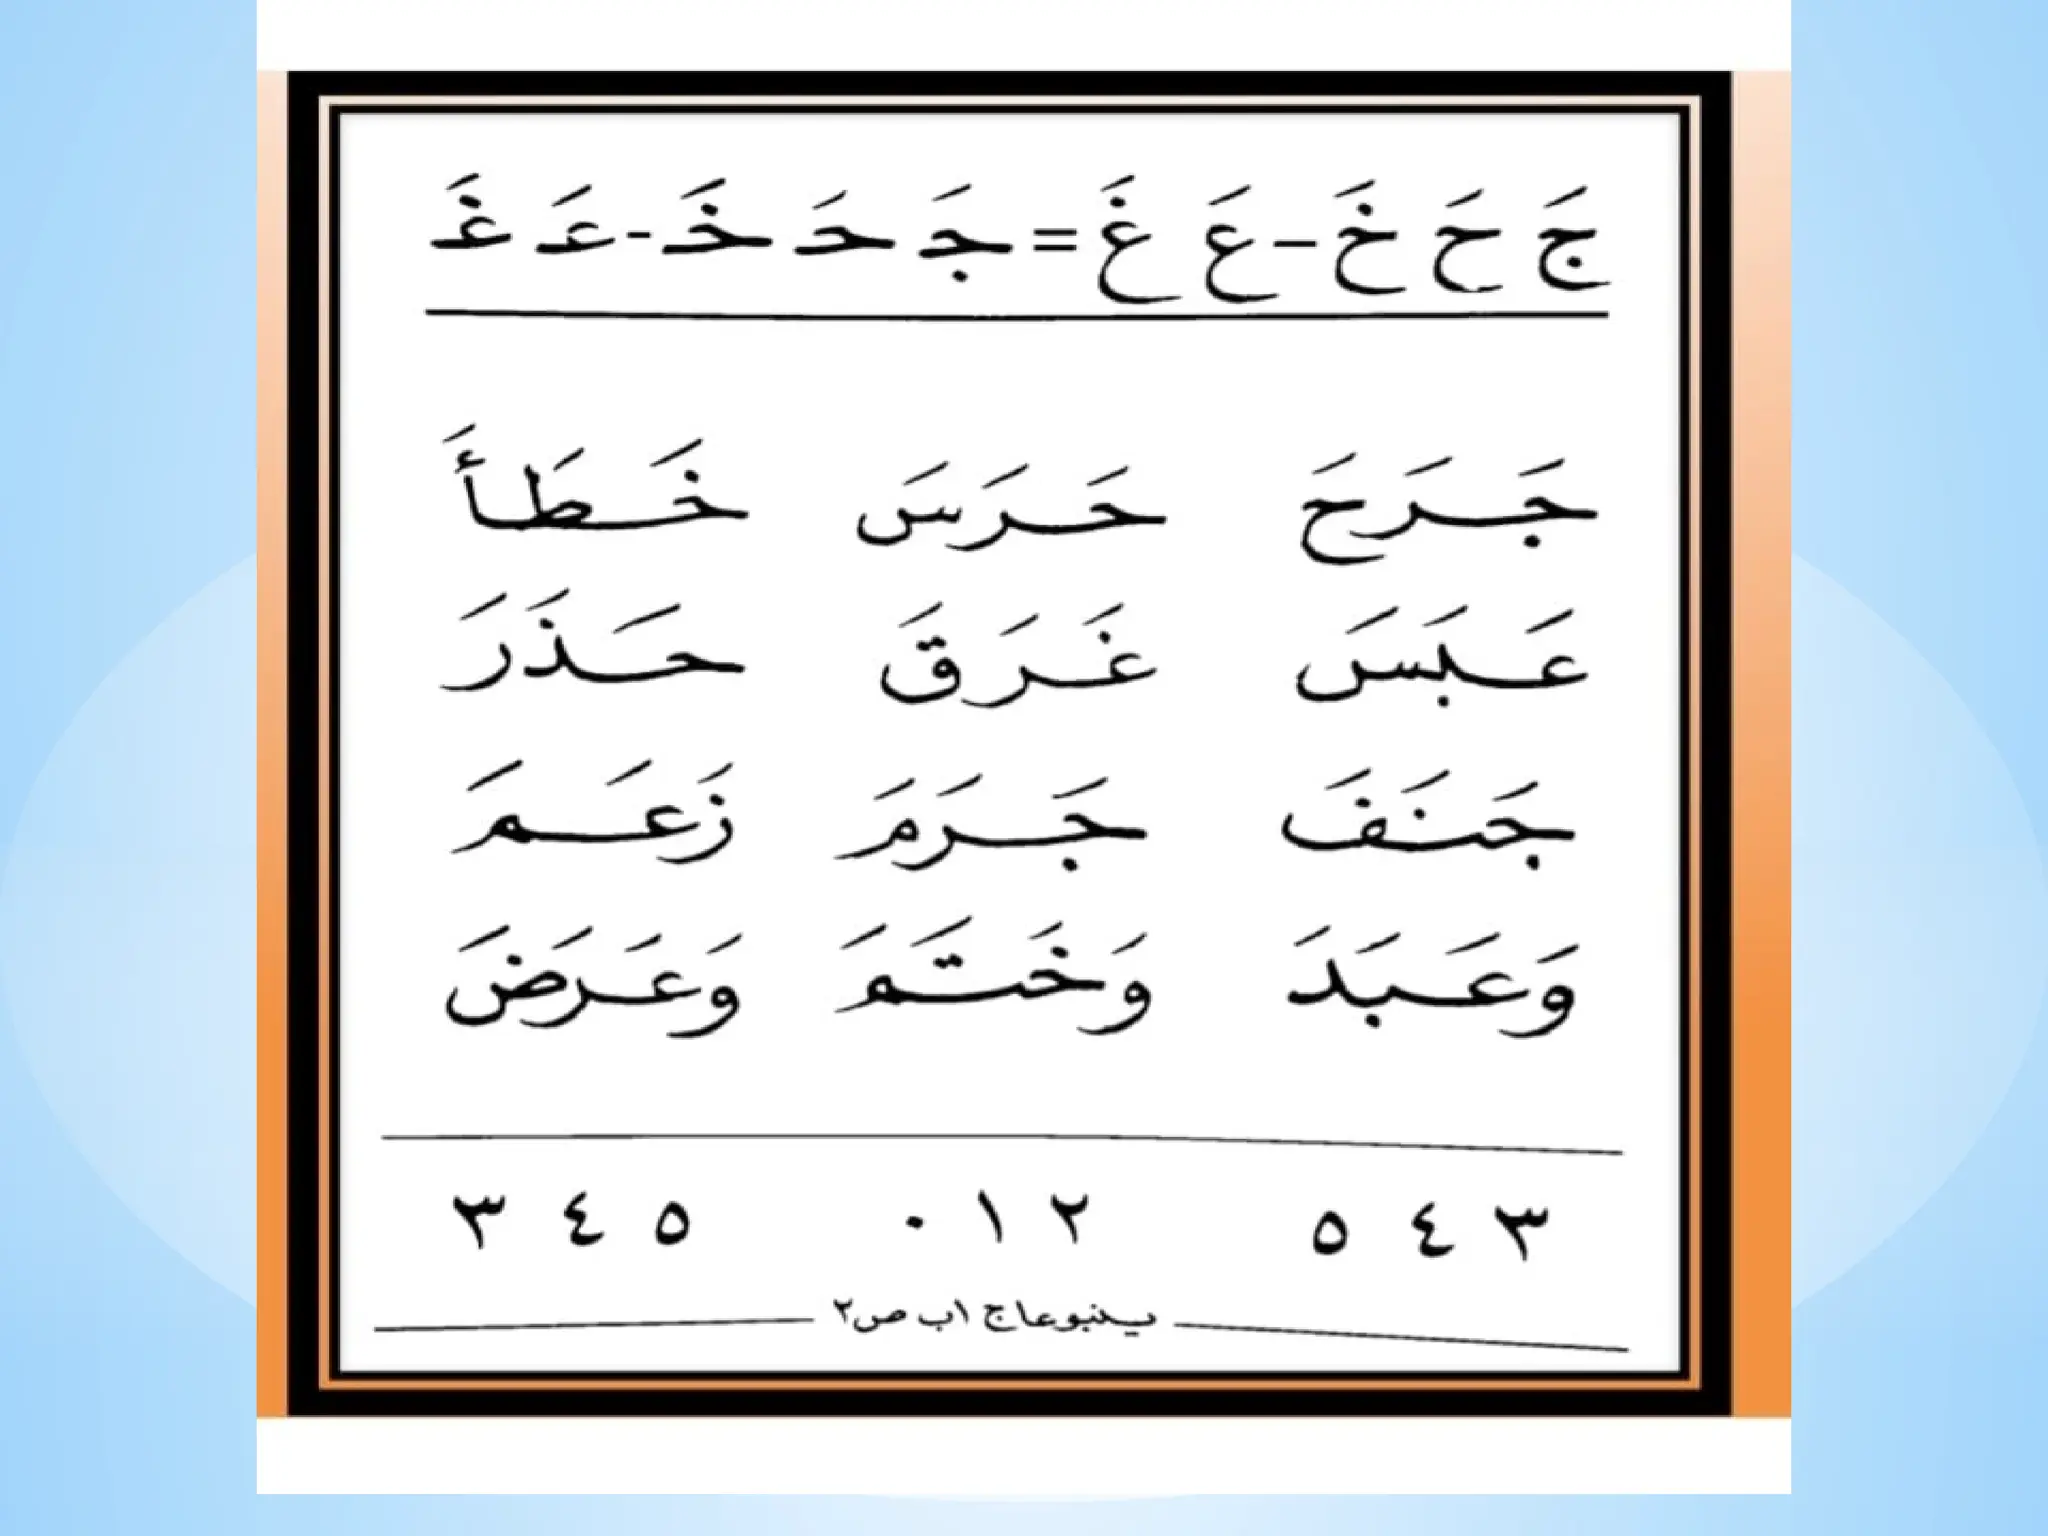 جَ حَ خَ – عَ غَ = جَـ حَـ خَـ - عَـ غَـ
جَـرَحَ حَـرَسَ خَـطَـأَ
عَـبَسَ غَـرَقَ حَـذَرَ
جَـنَـفَ جَـرَمَ زَعَـمَ
وَعَـبَدَ وَخَتَـمَ وَعَـرَضَ
٣ ٤ ٥ ٢ ١ ٠ ٥ ٤ ٣
ج ١ب ص٢